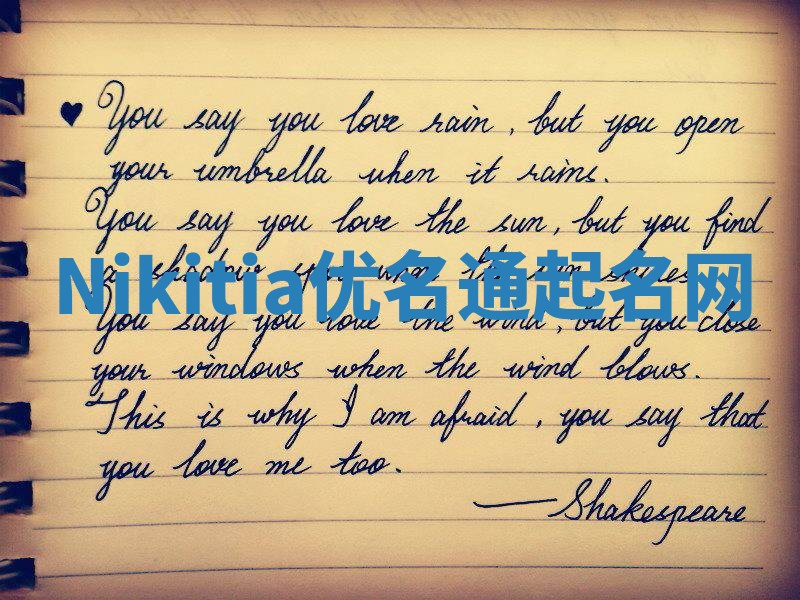 ♥ You say you love rain, but you open
your umbrella when it rains.
You say you love the sun, but you find
a shadow spot when the sun shines.
Nikitia优名通起名网
You say you love the wind, but you close
your windows when the wind blows.
This is why I am afraid, you say that
you love me too.
—Shakespeare